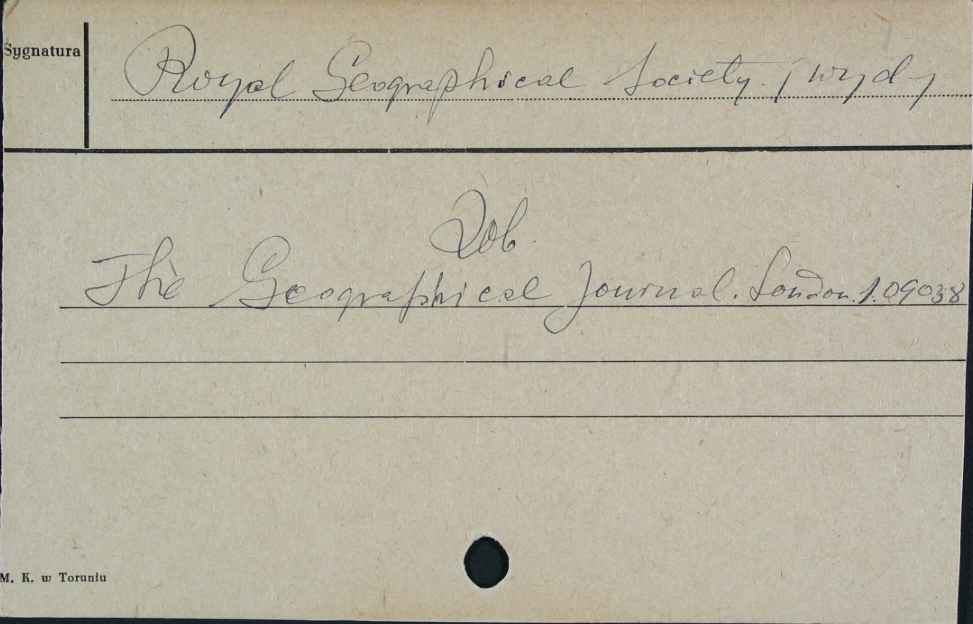 Sygnatura
Royal Geographical Society. / wyd /
Zob.
The Geographical Journal. London. 1.09038
M. K. w Toruniu